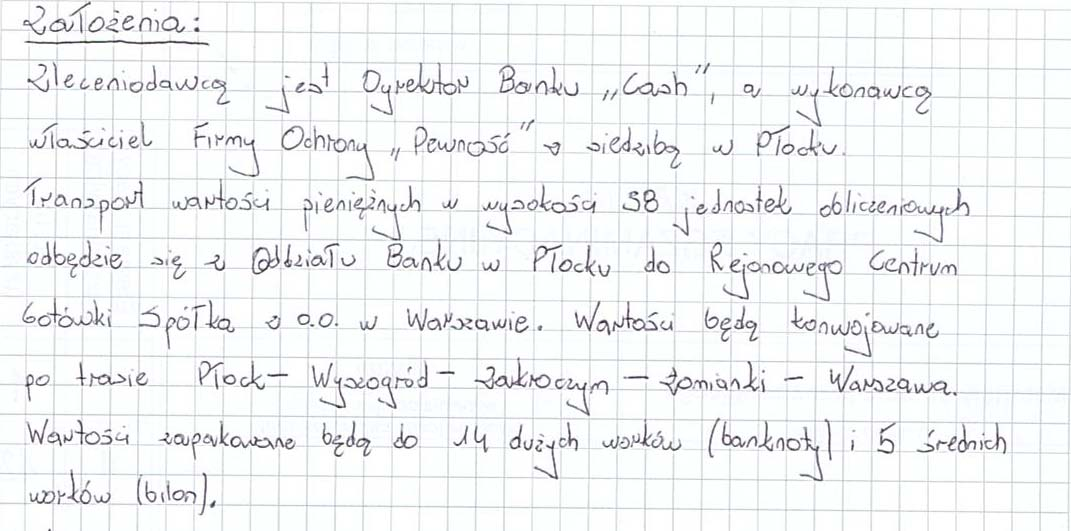 Założenia:
Zleceniodawcą jest Dyrektor Banku „Cash", a wykonawcą
właściciel Firmy Ochrony „Pewność" z siedzibą w Płocku.
Transport wartości pieniężnych w wysokości 38 jednostek obliczeniowych
odbędzie się z Oddziału Banku w Płocku do Rejonowego Centrum
Gotówki Spółka z o.o. w Warszawie. Wartości będą konwojowane
po trasie Płock – Wyszogród – Zakroczym – Łomianki – Warszawa.
Wartości zapakowane będą do 14 dużych worków (banknoty) i 5 średnich
worków (bilon).